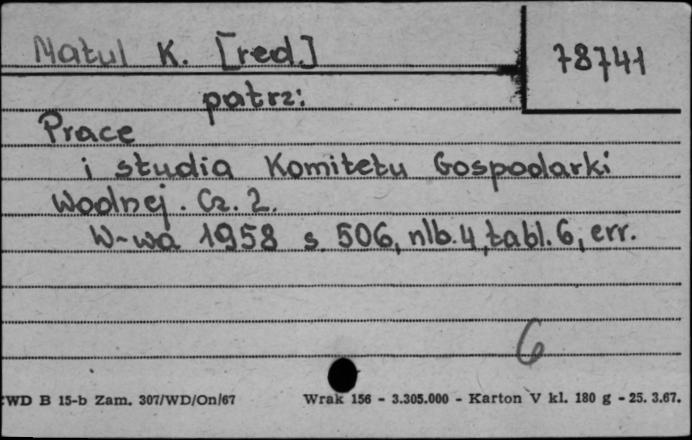 Matul K. [red.]
78741
patrz:
Prace
i studia Komitetu Gospodarki
Wodnej. Cz. 2.
W-wa 1958 s. 506, nlb. 4, tabl. 6, err.
6
CWD B 15-b Zam. 307/WD/On/67 Wrak 156 - 3.305.000 - Karton V kl. 180 g - 25. 3.67.